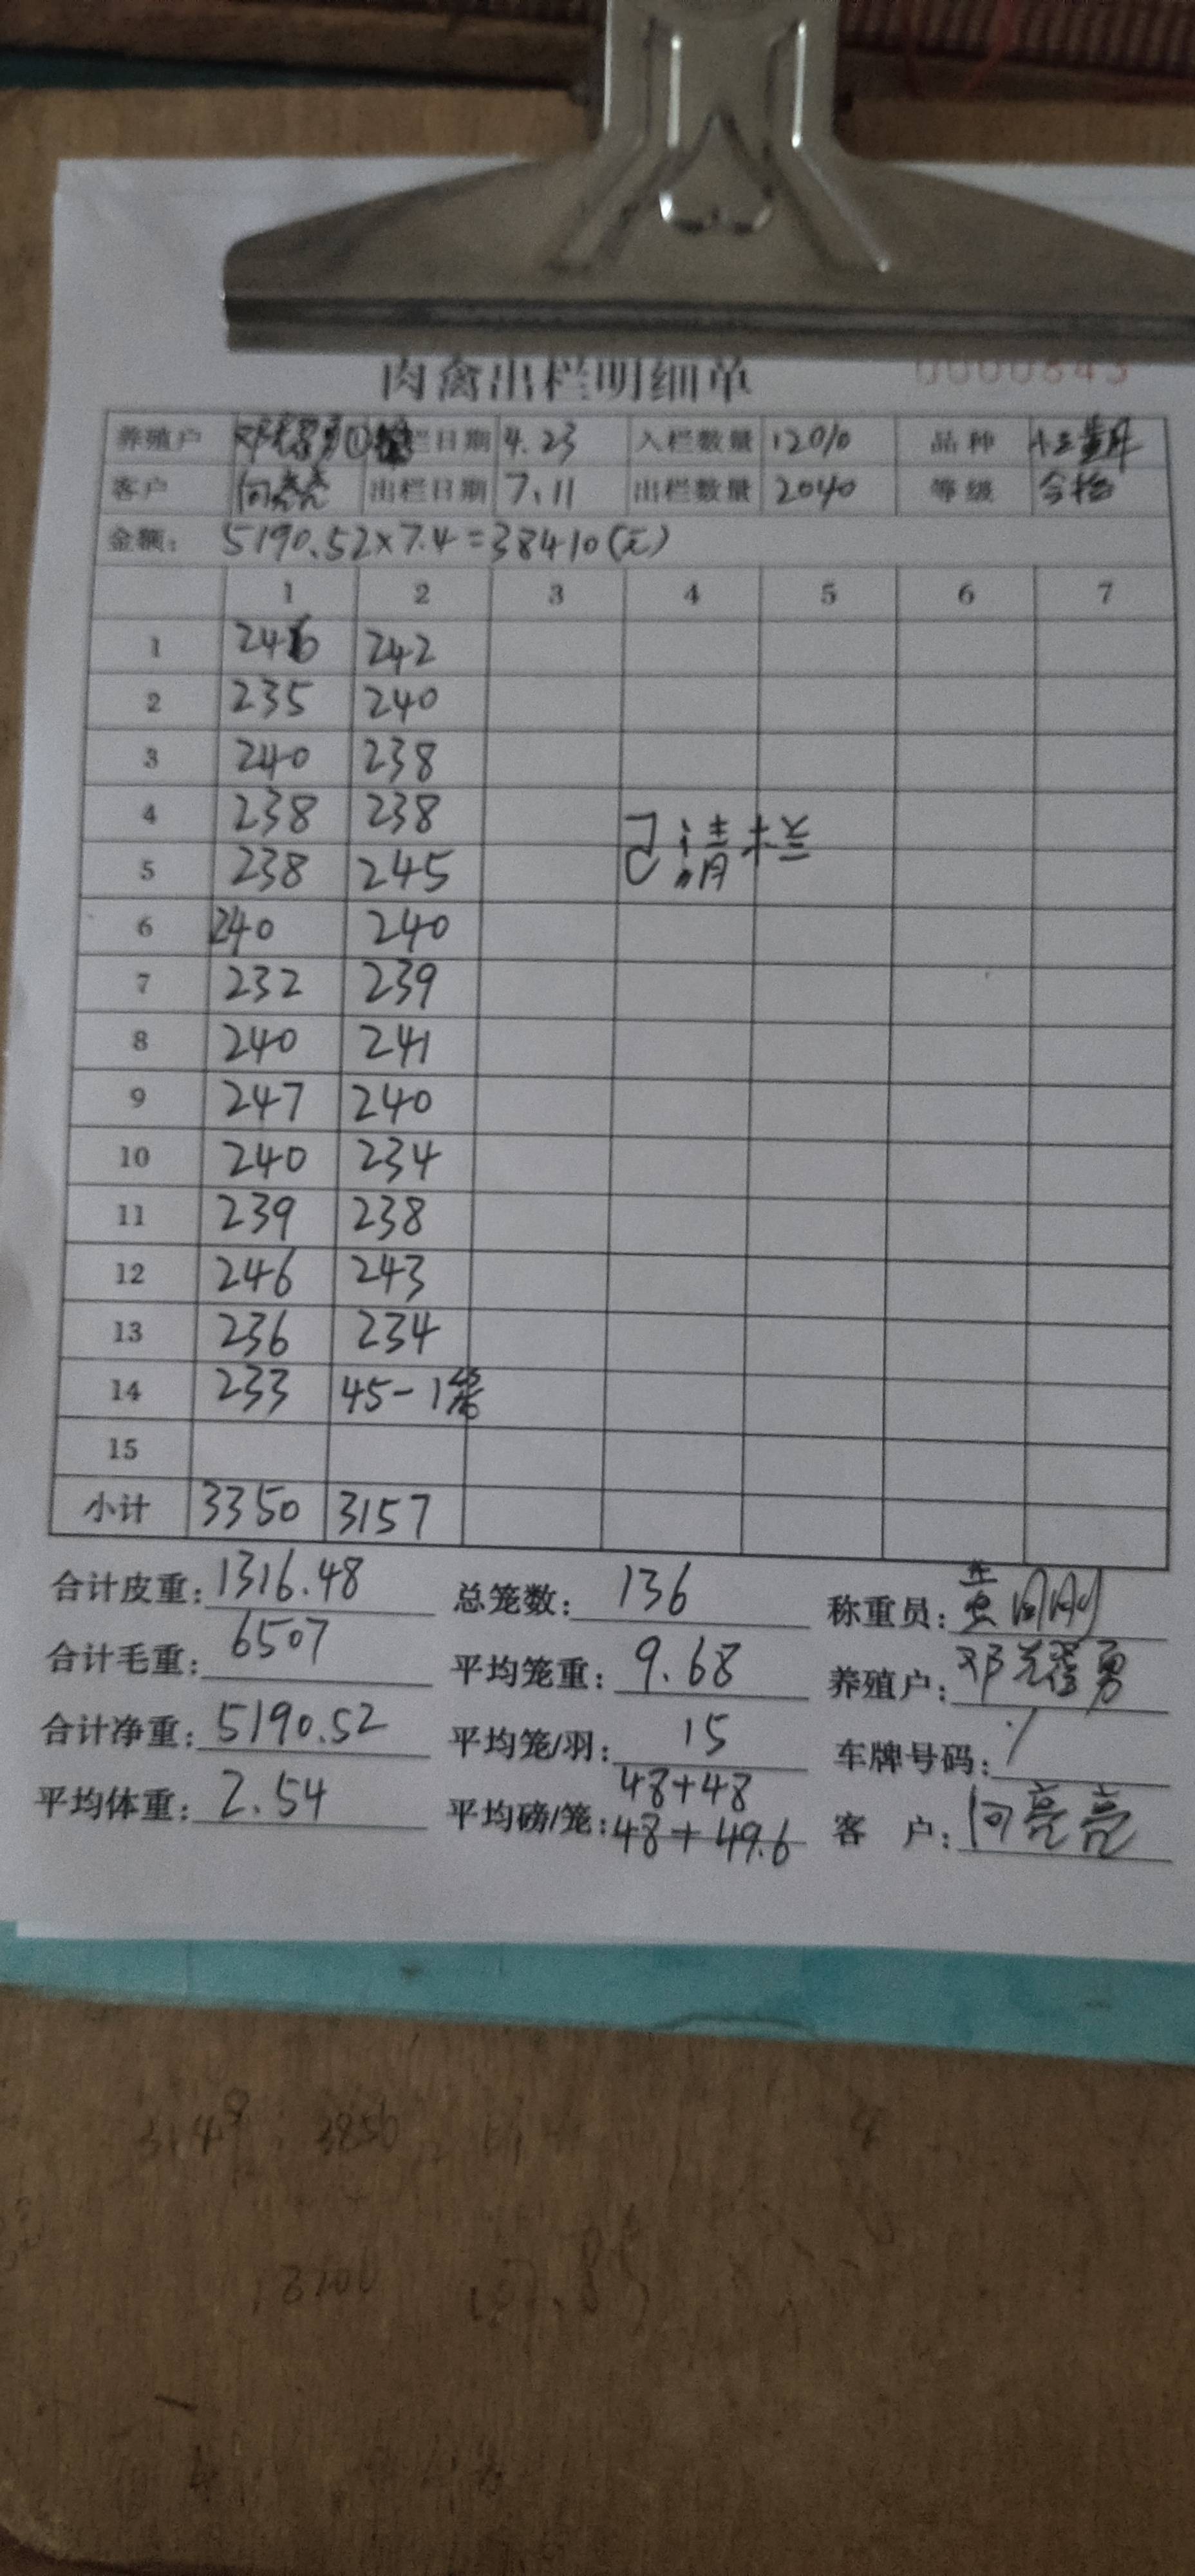 肉禽出栏明细单 0000843
养殖户 邓耀勇① 栏日期 4.23 入栏数量 12010 品种
客户 何亮亮 出栏日期 7.11 出栏数量 2040 等级 合格
金额: 5190.52×7.4=38410(元)
1 2 3 4 5 6 7
1 246 242
2 235 240
3 240 238
4 238 238
已清栏
5 238 245
6 240 240
7 232 239
8 240 241
9 247 240
10 240 234
11 239 238
12 246 243
13 236 234
14 233 45-1笼
15
小计 3350 3157
合计皮重: 1316.48 总笼数: 136 称重员:
合计毛重: 6507 平均笼重: 9.68 养殖户: 邓耀勇
合计净重: 5190.52 平均笼/羽: 15 车牌号码: /
48+48
平均体重: 2.54 平均磅/笼: 48+49.6 客 户: 何亮亮